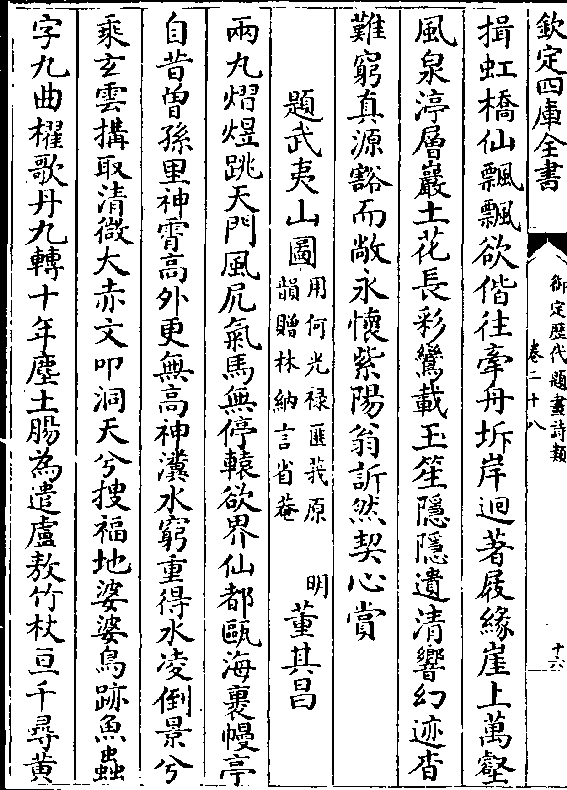 欽定四庫全書
御定歴代題畫詩類
卷二十八
十六
揖虹橋仙飄飄欲偕往牽舟坼岸迴著屐緣崖上萬壑
風泉渟層巖土花長彩鸞載玉笙隱隱遺清響幻迹杳
難窮真源豁而敞永懐紫陽翁訢然契心賞
題武夷山圖
用何光禄匪莪原
韻贈林納言省菴
明
董其昌
兩丸熠煜跳天門風尻氣馬無停轅欲界仙都甌海裏幔亭
自昔曽孫里神霄高外更無高神瀵水窮重得水凌倒景兮
乘玄雲搆取清微大赤文叩洞天兮搜福地婆娑鳥跡魚蟲
字九曲櫂歌丹九轉十年塵土腸為遣盧敖竹杖亘千尋黄